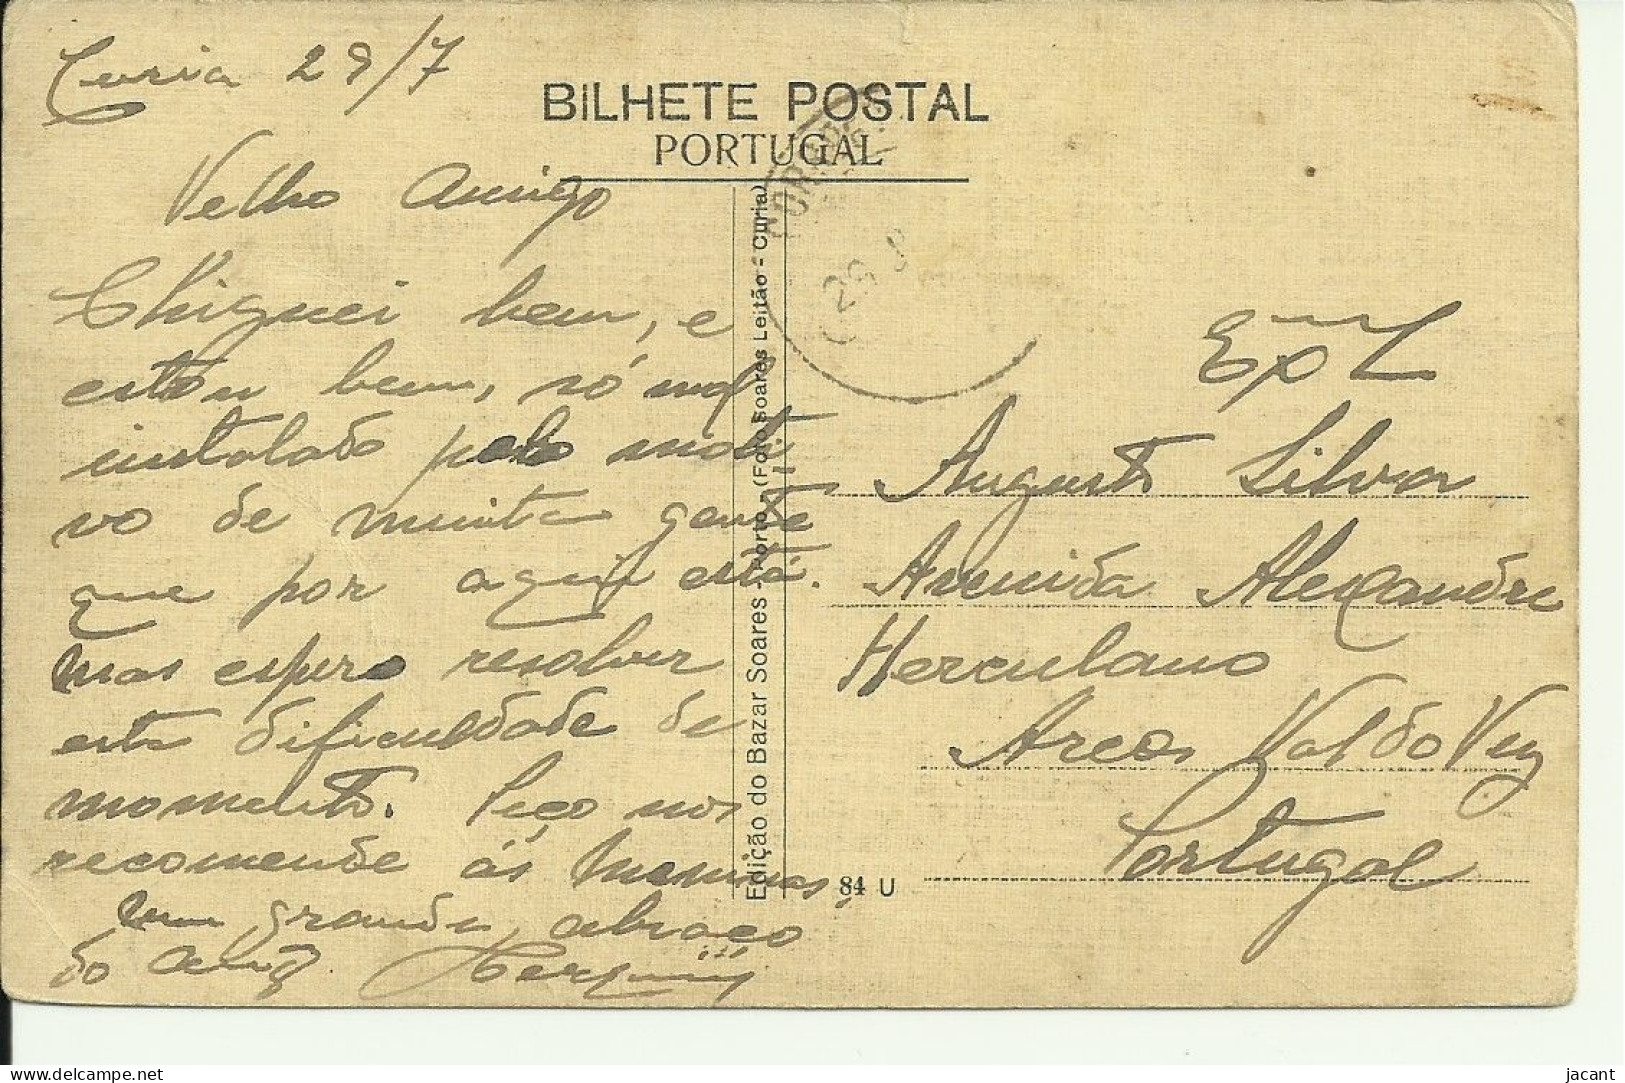 Curia 29/7
BILHETE POSTAL
PORTUGAL
Velho Amigo
Chiguei bem, e
estou bem, só mal
instalado pelo moti
vo de muita gente
que por aqui está.
mas espero resolver
esta dificuldade de
momento. Peço nos
recomende ás meninas,
um grande abraço
do amg.
Edição do Bazar Soares - Porto (Foto Soares Leitão - Curia)
CORREIOS
84 U
Exmº
Augusto Silva
Avenida Alexandre
Herculano
Arcos Val do Vez
Portugal
delcampe.net
jacant